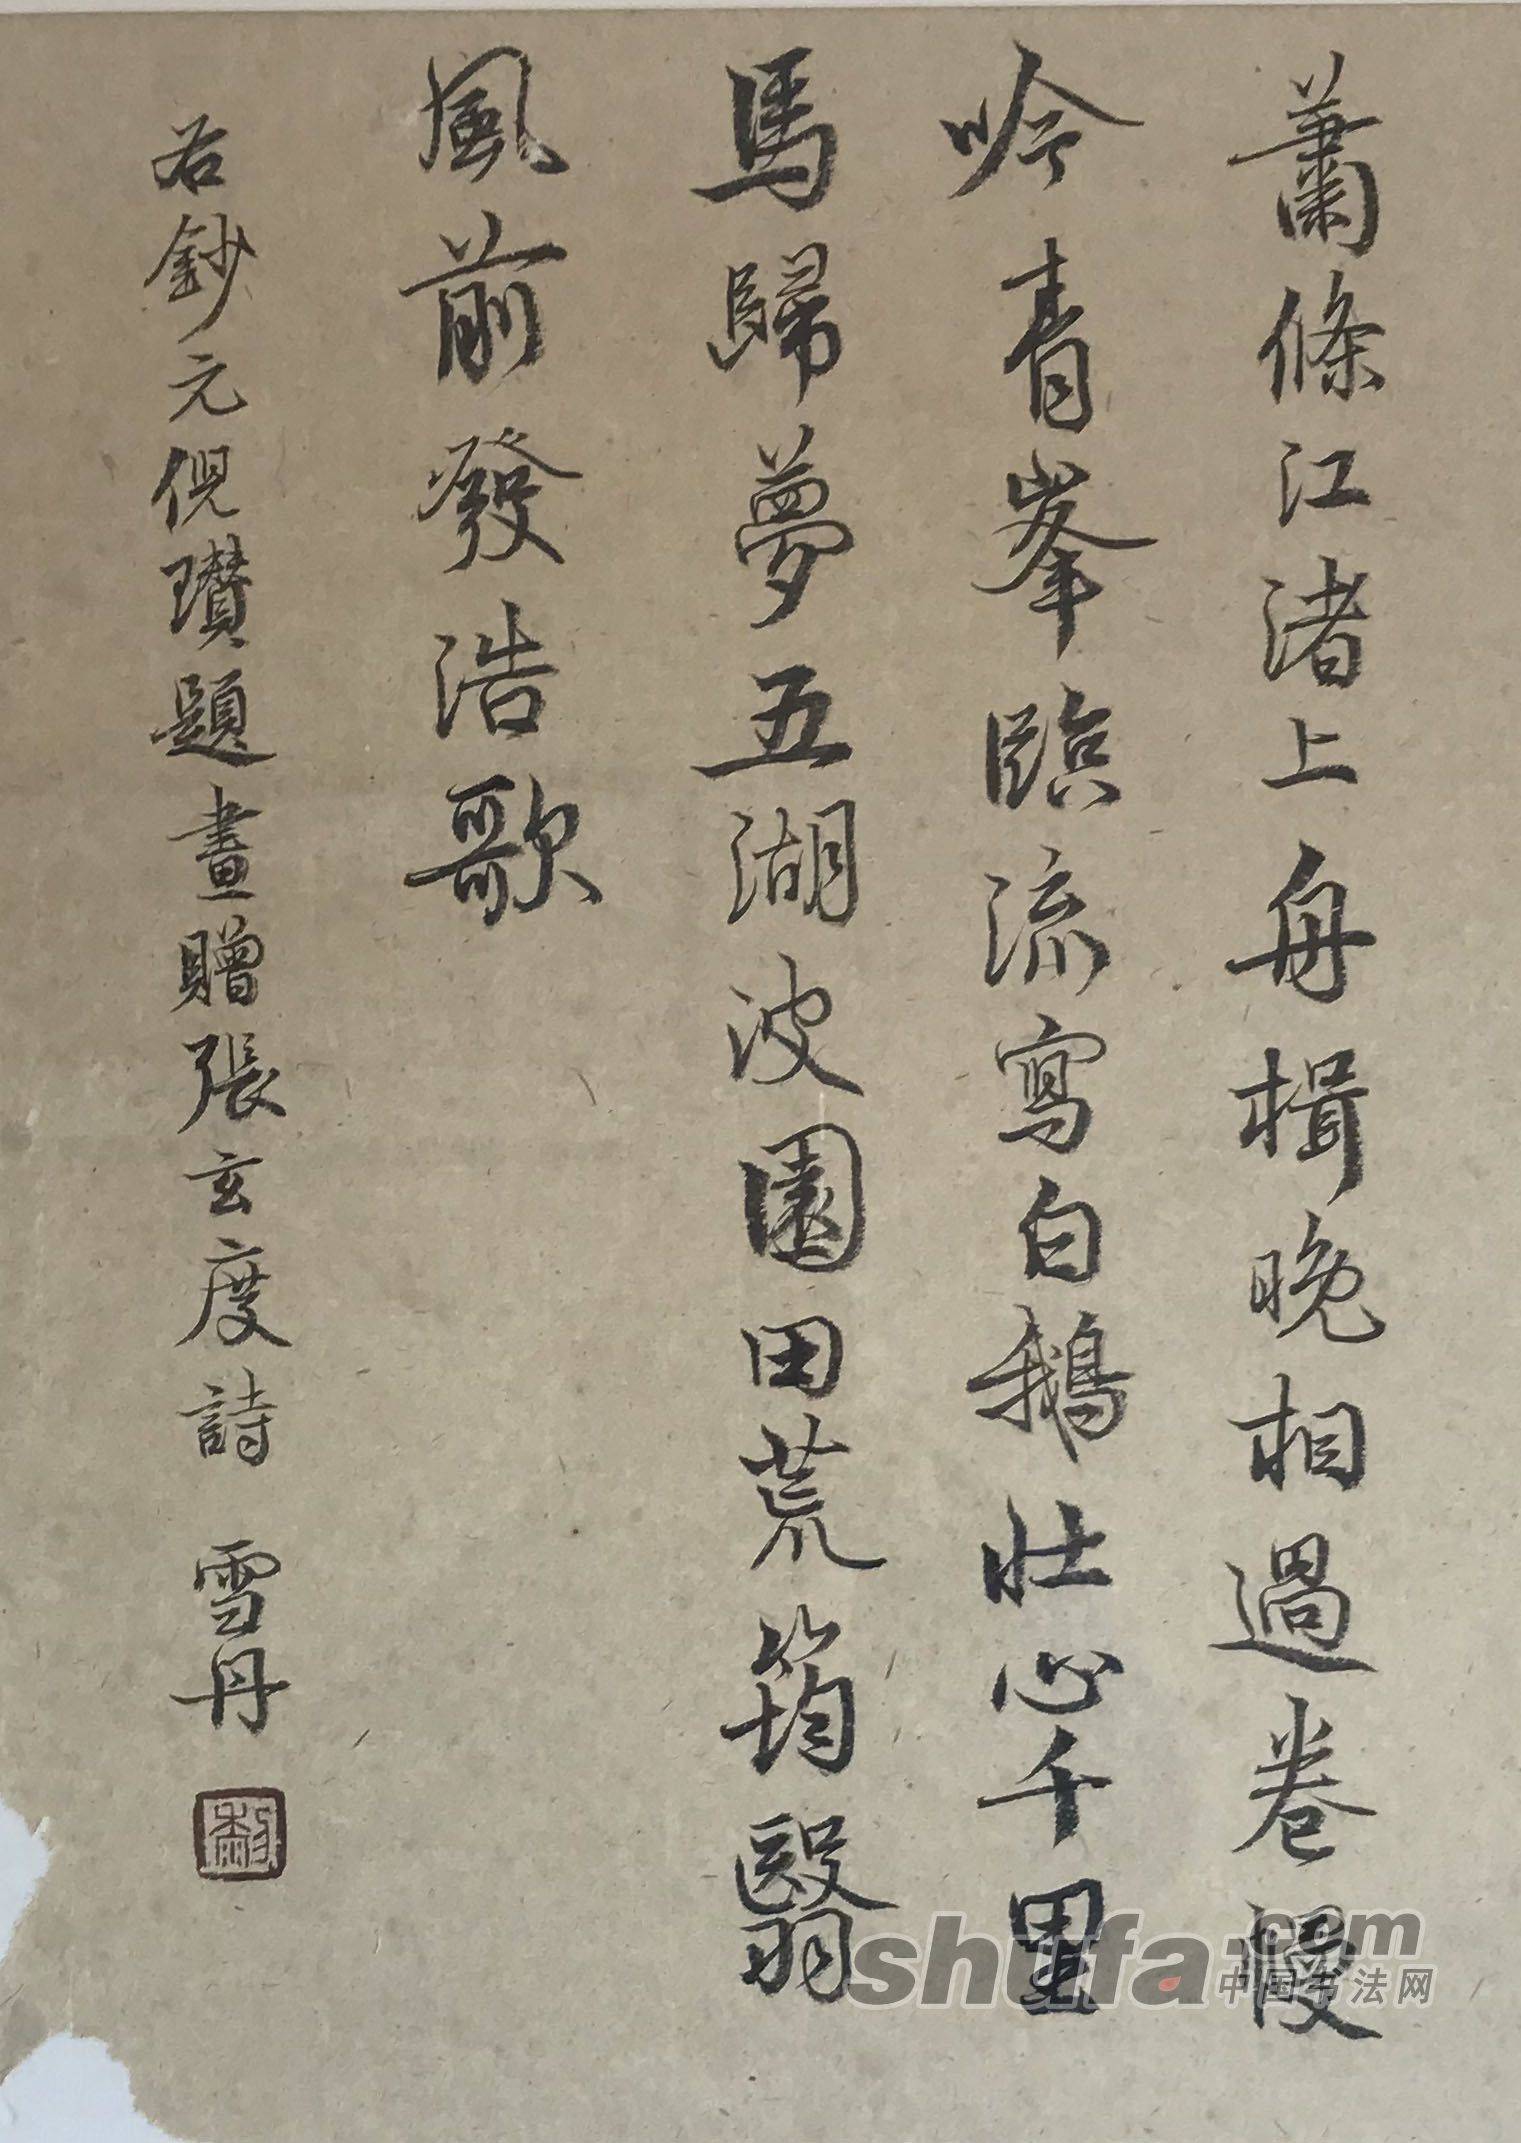 蕭條江渚上舟楫晚相過卷幔
吟青峯臨流寫白鵝壯心千里
馬歸夢五湖波園田荒筠翳
風前發浩歌
右鈔元倪瓚題畫贈張玄度詩 雪丹
shufa.com
中国书法网